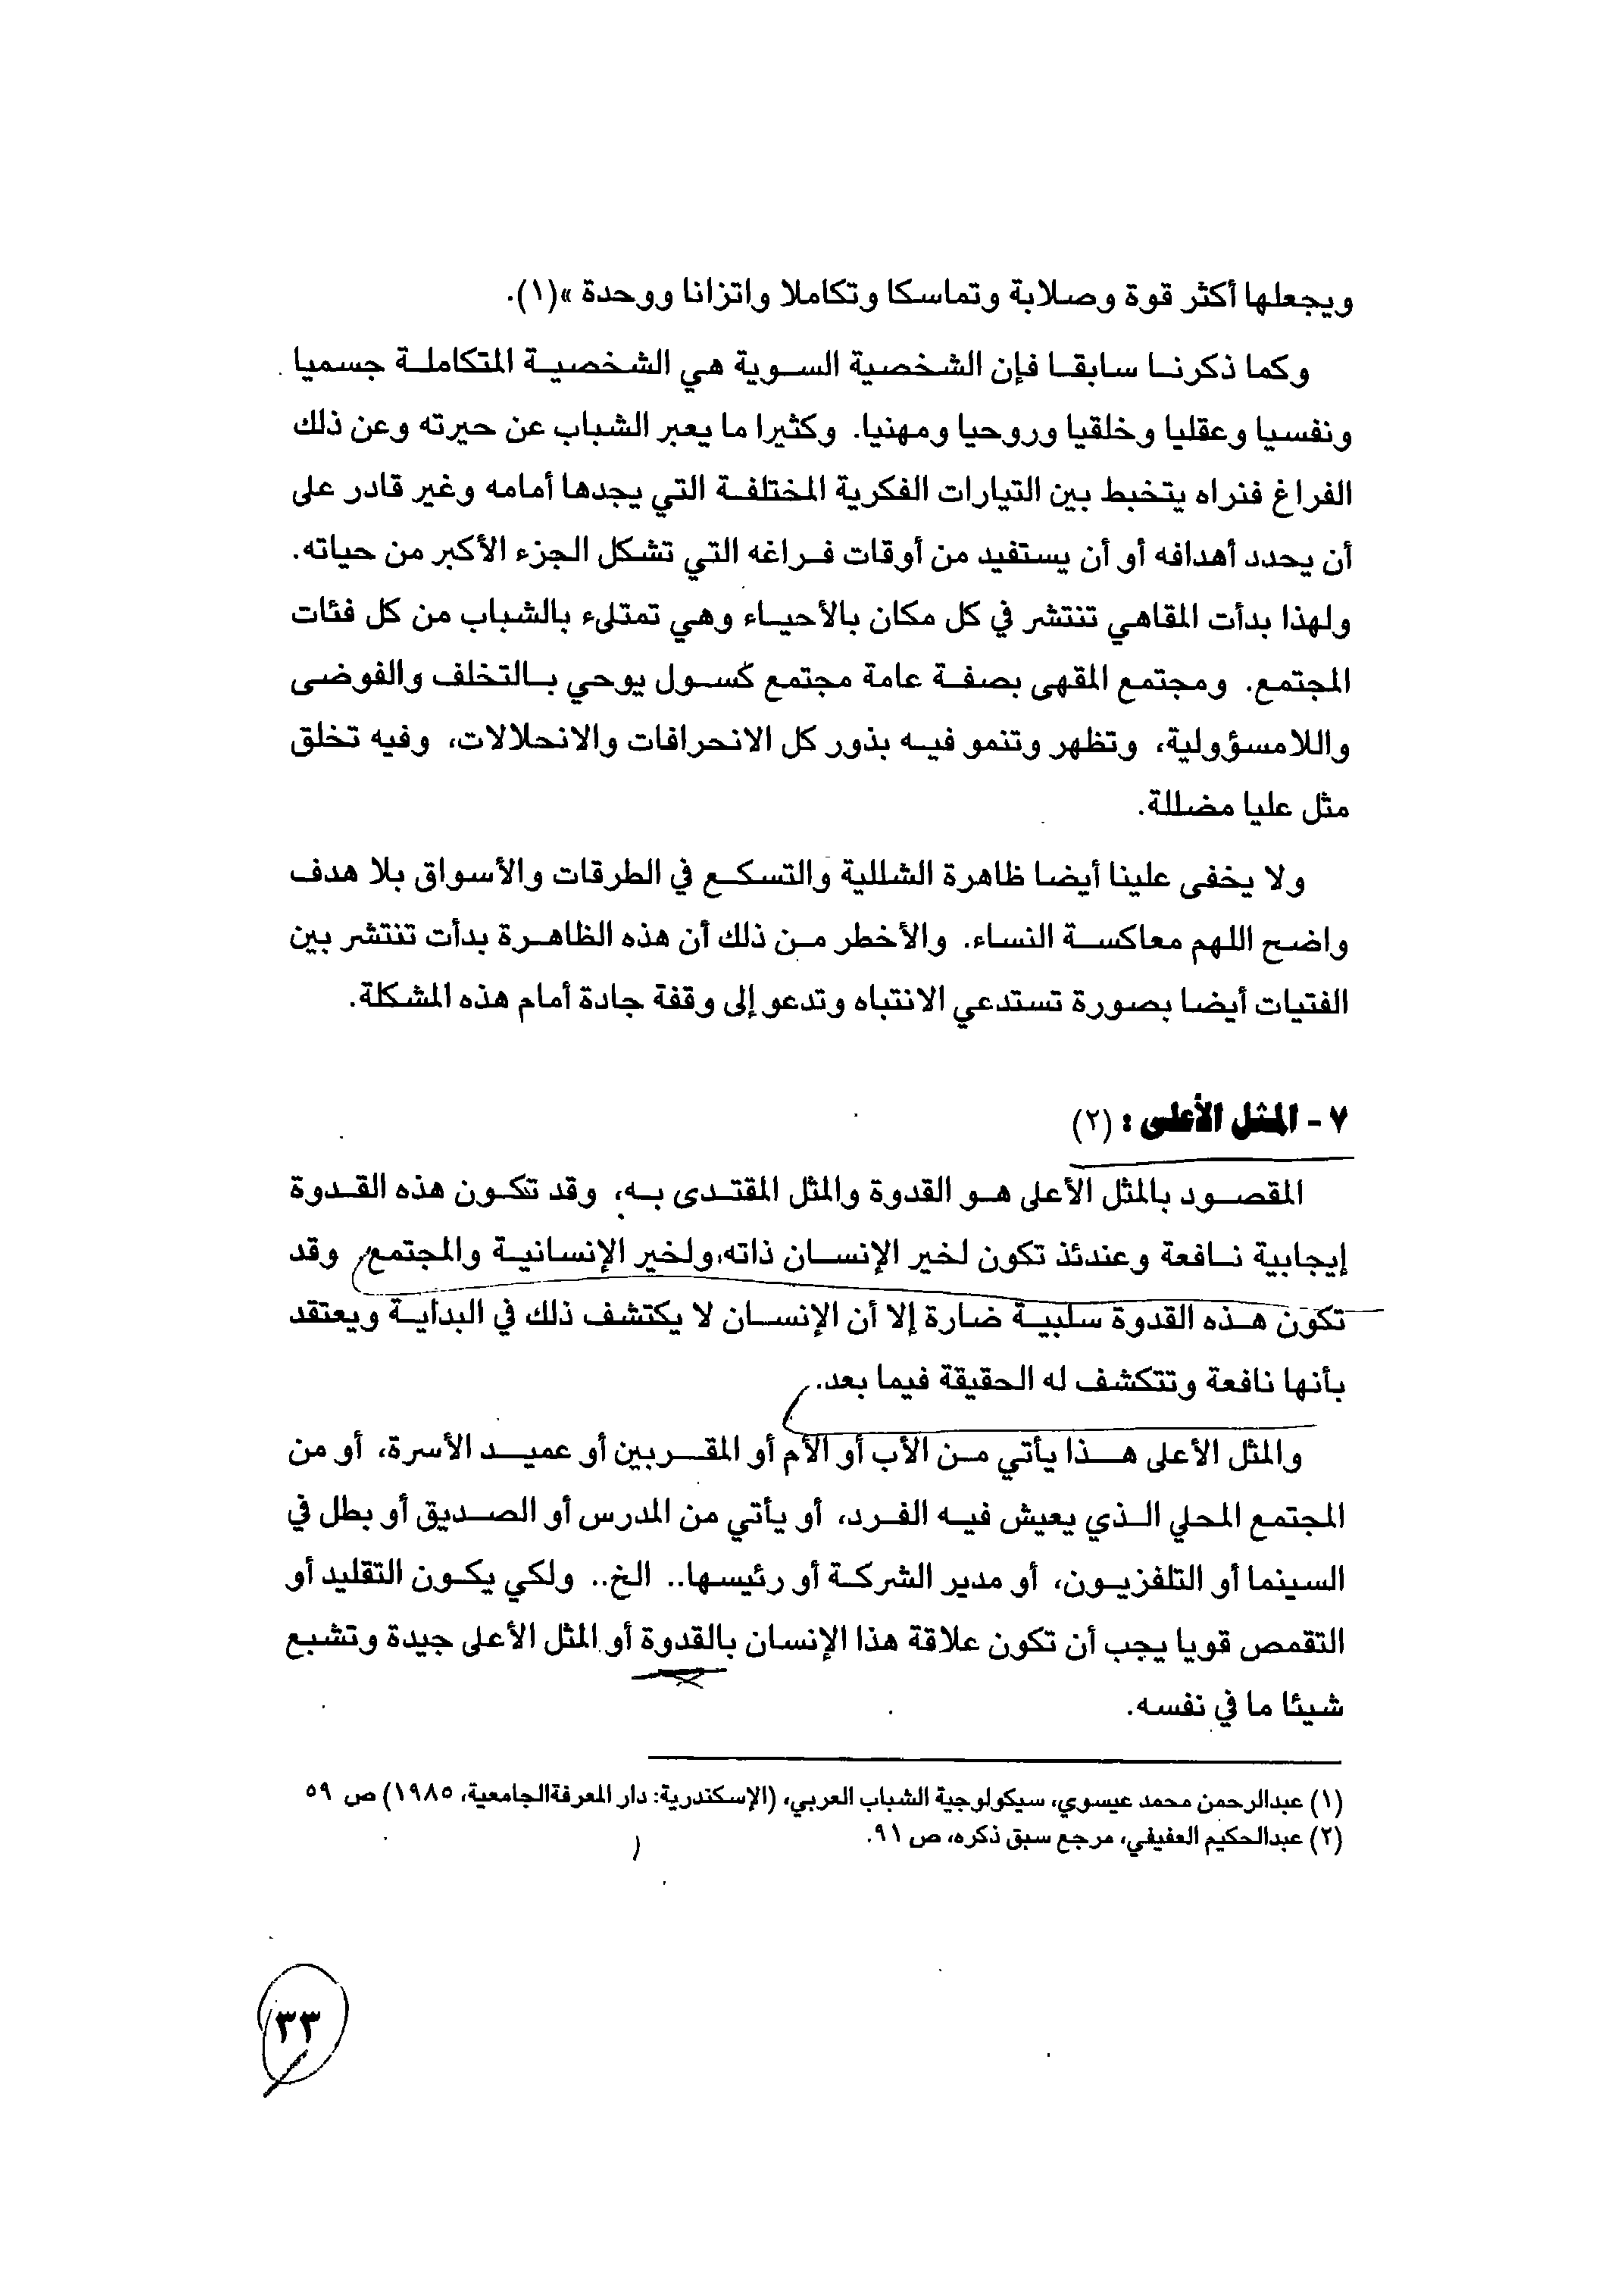 ويجعلها أكثر قوة وصلابة وتماسكا وتكاملا واتزانا ووحدة »(١).
وكما ذكرنا سابقا فإن الشخصية السوية هي الشخصية المتكاملة جسميا
ونفسيا وعقليا وخلقيا وروحيا ومهنيا. وكثيرا ما يعبر الشباب عن حيرته وعن ذلك
الفراغ فنراه يتخبط بين التيارات الفكرية المختلفة التي يجدها أمامه وغير قادر على
أن يحدد أهدافه أو أن يستفيد من أوقات فراغه التي تشكل الجزء الأكبر من حياته.
ولهذا بدأت المقاهي تنتشر في كل مكان بالأحياء وهي تمتلىء بالشباب من كل فئات
المجتمع. ومجتمع المقهى بصفة عامة مجتمع كسول يوحي بالتخلف والفوضى
واللامسؤولية، وتظهر وتنمو فيه بذور كل الانحرافات والانحلالات، وفيه تخلق
مثل عليا مضللة.
ولا يخفى علينا أيضا ظاهرة الشللية والتسكع في الطرقات والأسواق بلا هدف
واضح اللهم معاكسة النساء. والأخطر من ذلك أن هذه الظاهرة بدأت تنتشر بين
الفتيات أيضا بصورة تستدعي الانتباه وتدعو إلى وقفة جادة أمام هذه المشكلة.
٧ - المثل الأعلى : (٢)
المقصود بالمثل الأعلى هو القدوة والمثل المقتدى به، وقد تكون هذه القدوة
إيجابية نافعة وعندئذ تكون لخير الإنسان ذاته، ولخير الإنسانية والمجتمع، وقد
تكون هذه القدوة سلبية ضارة إلا أن الإنسان لا يكتشف ذلك في البداية ويعتقد
بأنها نافعة وتتكشف له الحقيقة فيما بعد.
والمثل الأعلى هذا يأتي من الأب أو الأم أو المقربين أو عميد الأسرة، أو من
المجتمع المحلي الذي يعيش فيه الفرد، أو يأتي من المدرس أو الصديق أو بطل في
السينما أو التلفزيون، أو مدير الشركة أو رئيسها.. الخ.. ولكي يكون التقليد أو
التقمص قويا يجب أن تكون علاقة هذا الإنسان بالقدوة أو المثل الأعلى جيدة وتشبع
شيئا ما في نفسه.
(١) عبدالرحمن محمد عيسوي، سيكولوجية الشباب العربي، (الإسكندرية: دار المعرفةالجامعية، ١٩٨٥) ص ٥٩
(٢) عبدالحكيم العفيفي، مرجع سبق ذكره، ص ٩١.
٣٣